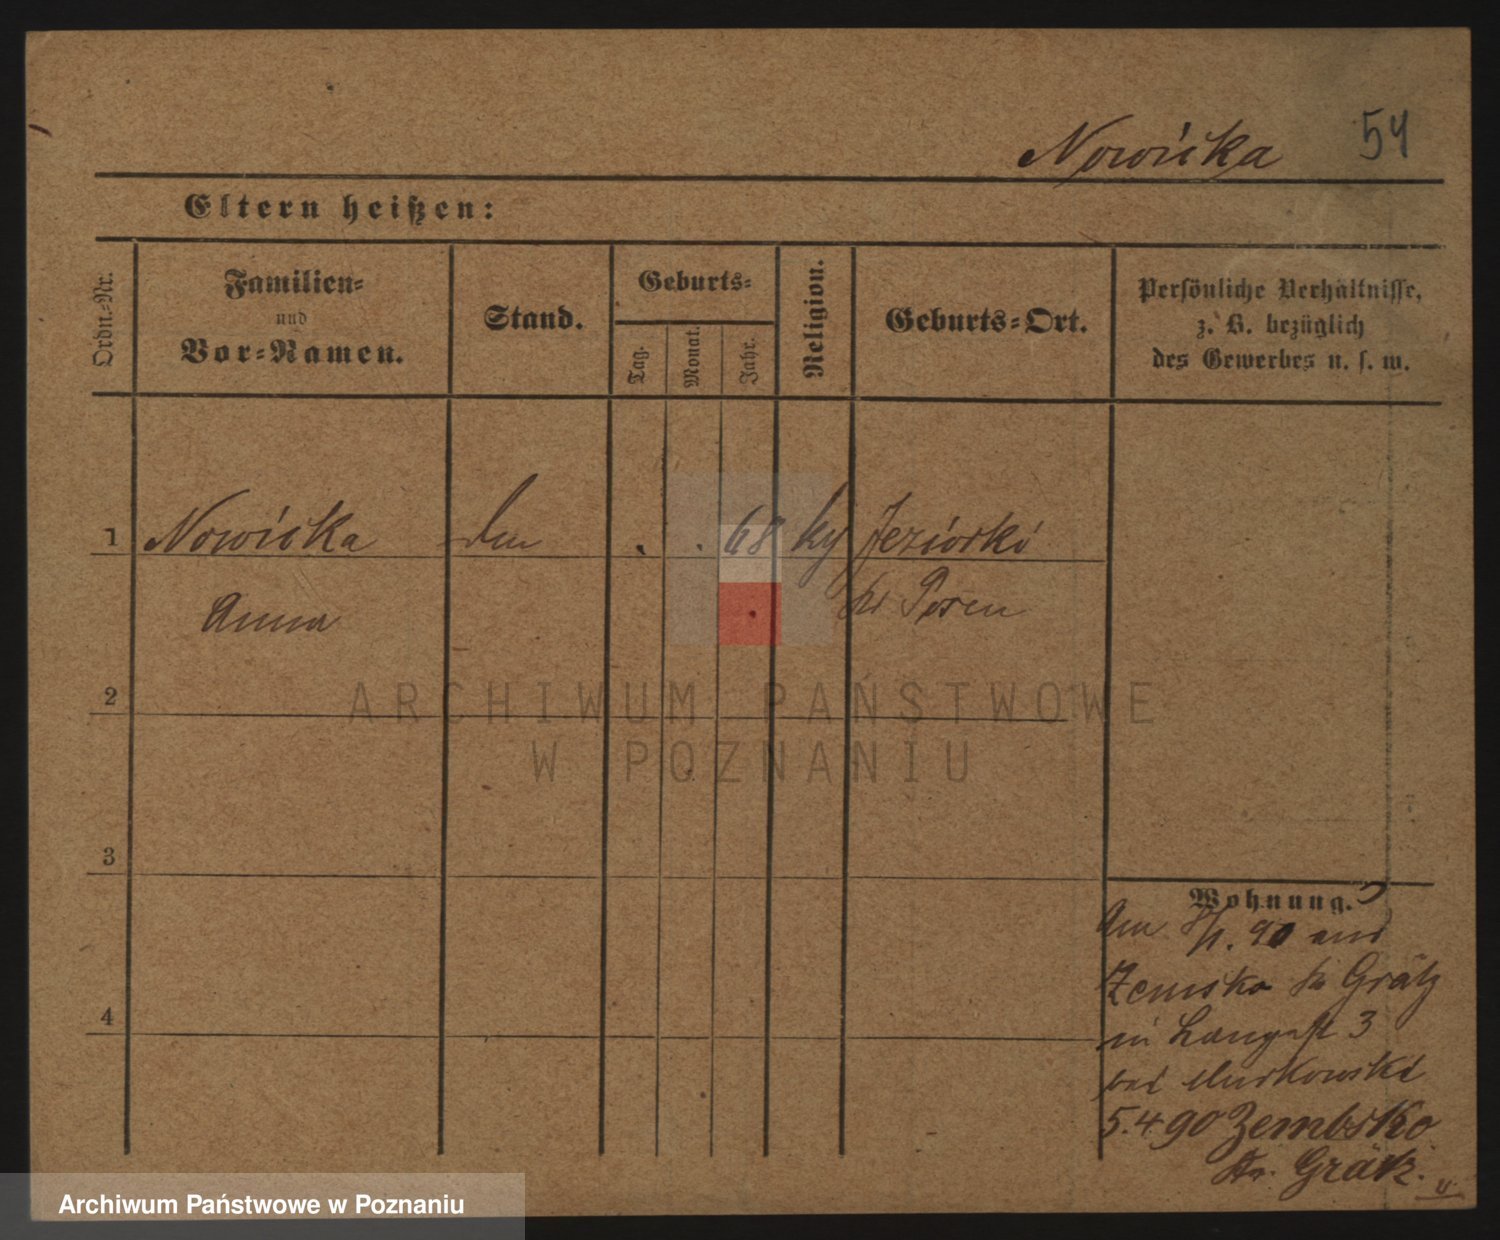 Nowicka 54
Eltern heißen:
Ordn.-Nr.
Familien-
und
Vor-Namen.
Stand.
Geburts-
Tag.
Monat.
Jahr.
Religion.
Geburts-Ort.
Persönliche Verhältnisse,
z. B. bezüglich
des Gewerbes u. s. w.
1 Nowicka 68 Jeziorki
Anna Kr Posen
2
3
4
Wohnung.
Am 90 aus
Zemsko Kr Grätz
in Langestr 3
bei
5.4.90 Zembsko
Kr. Grätz.
ARCHIWUM PAŃSTWOWE
W POZNANIU
Archiwum Państwowe w Poznaniu